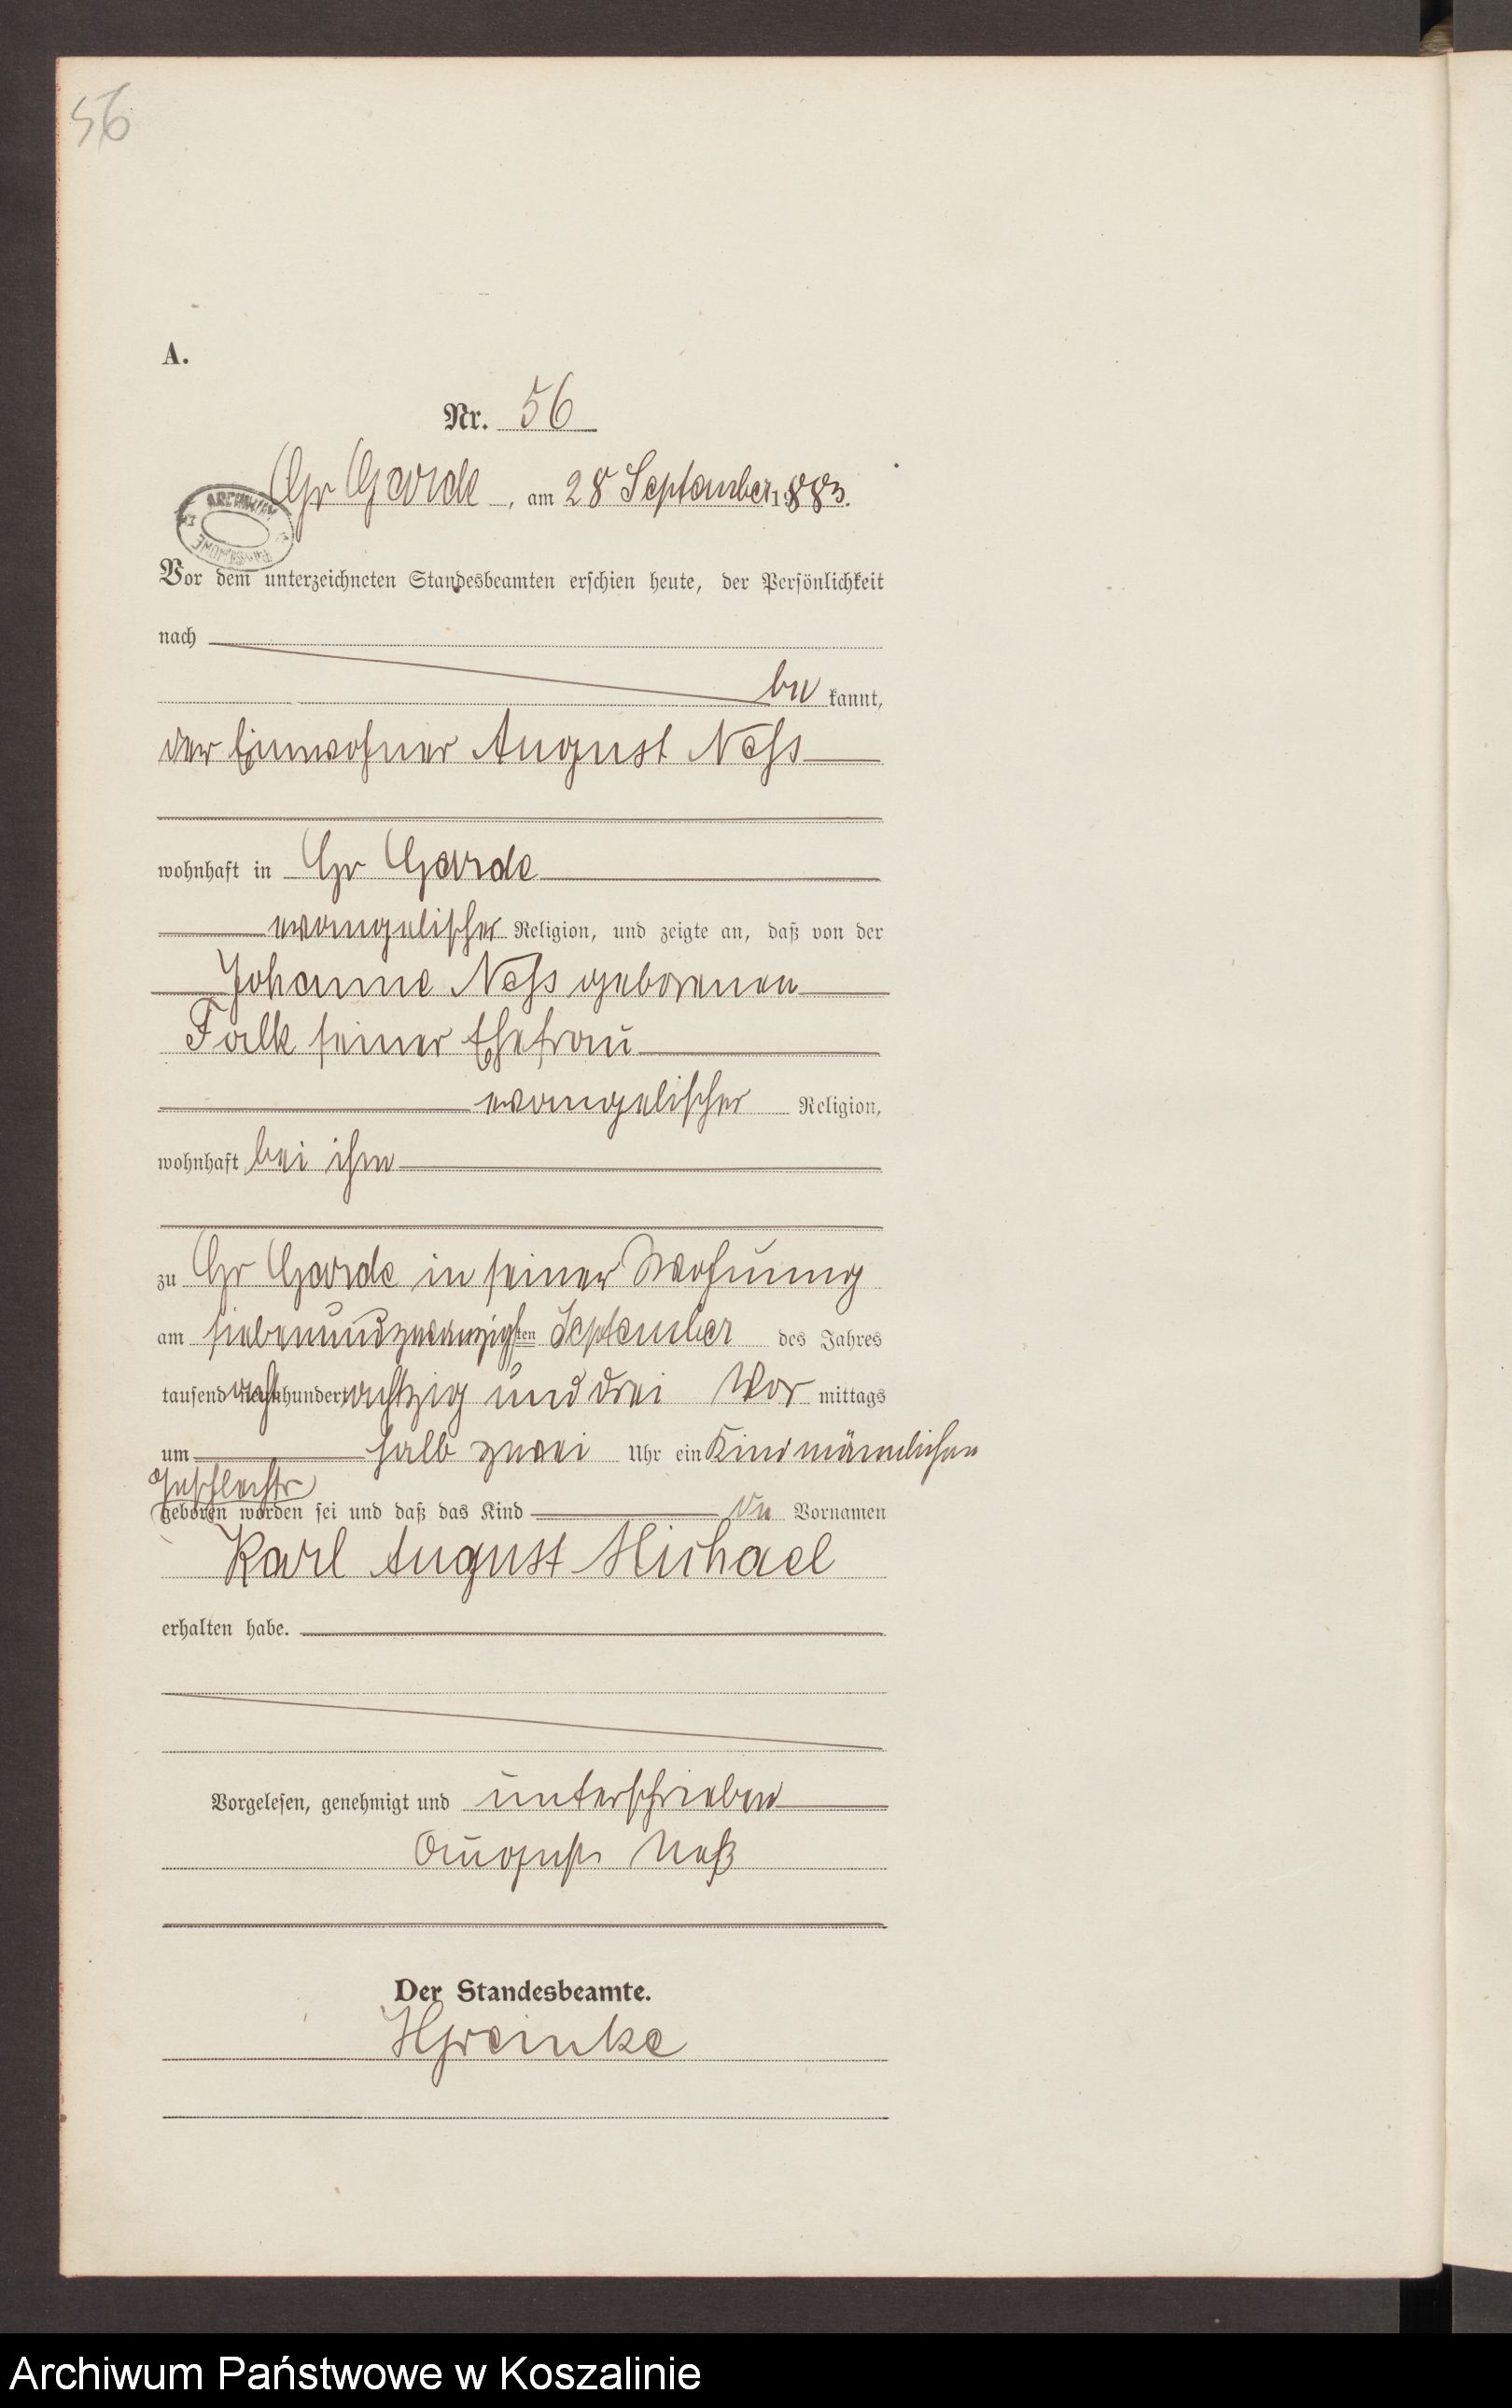 56
A.
Nr. 56
Gr Garde, am 28 September 1883.
ARCHIWUM
PAŃSTWOWE
Vor dem unterzeichneten Standesbeamten erschien heute, der Persönlichkeit
nach
be kannt,
der Einwohner August Ness
wohnhaft in Gr Garde
evangelischer Religion, und zeigte an, daß von der
Johanne Ness geborenen
Falk seiner Ehefrau
evangelischer Religion,
wohnhaft bei ihm
zu Gr Garde in seiner Wohnung
am siebenundzwanzigsten September des Jahres
tausend acht hundert achtzig und drei Vor mittags
um halb zwei Uhr ein Kind männlichen
Geschlechts
geboren worden sei und daß das Kind die Vornamen
Karl August Michael
erhalten habe.
Vorgelesen, genehmigt und unterschrieben
August Neß
Der Standesbeamte.
HGreinke
Archiwum Państwowe w Koszalinie